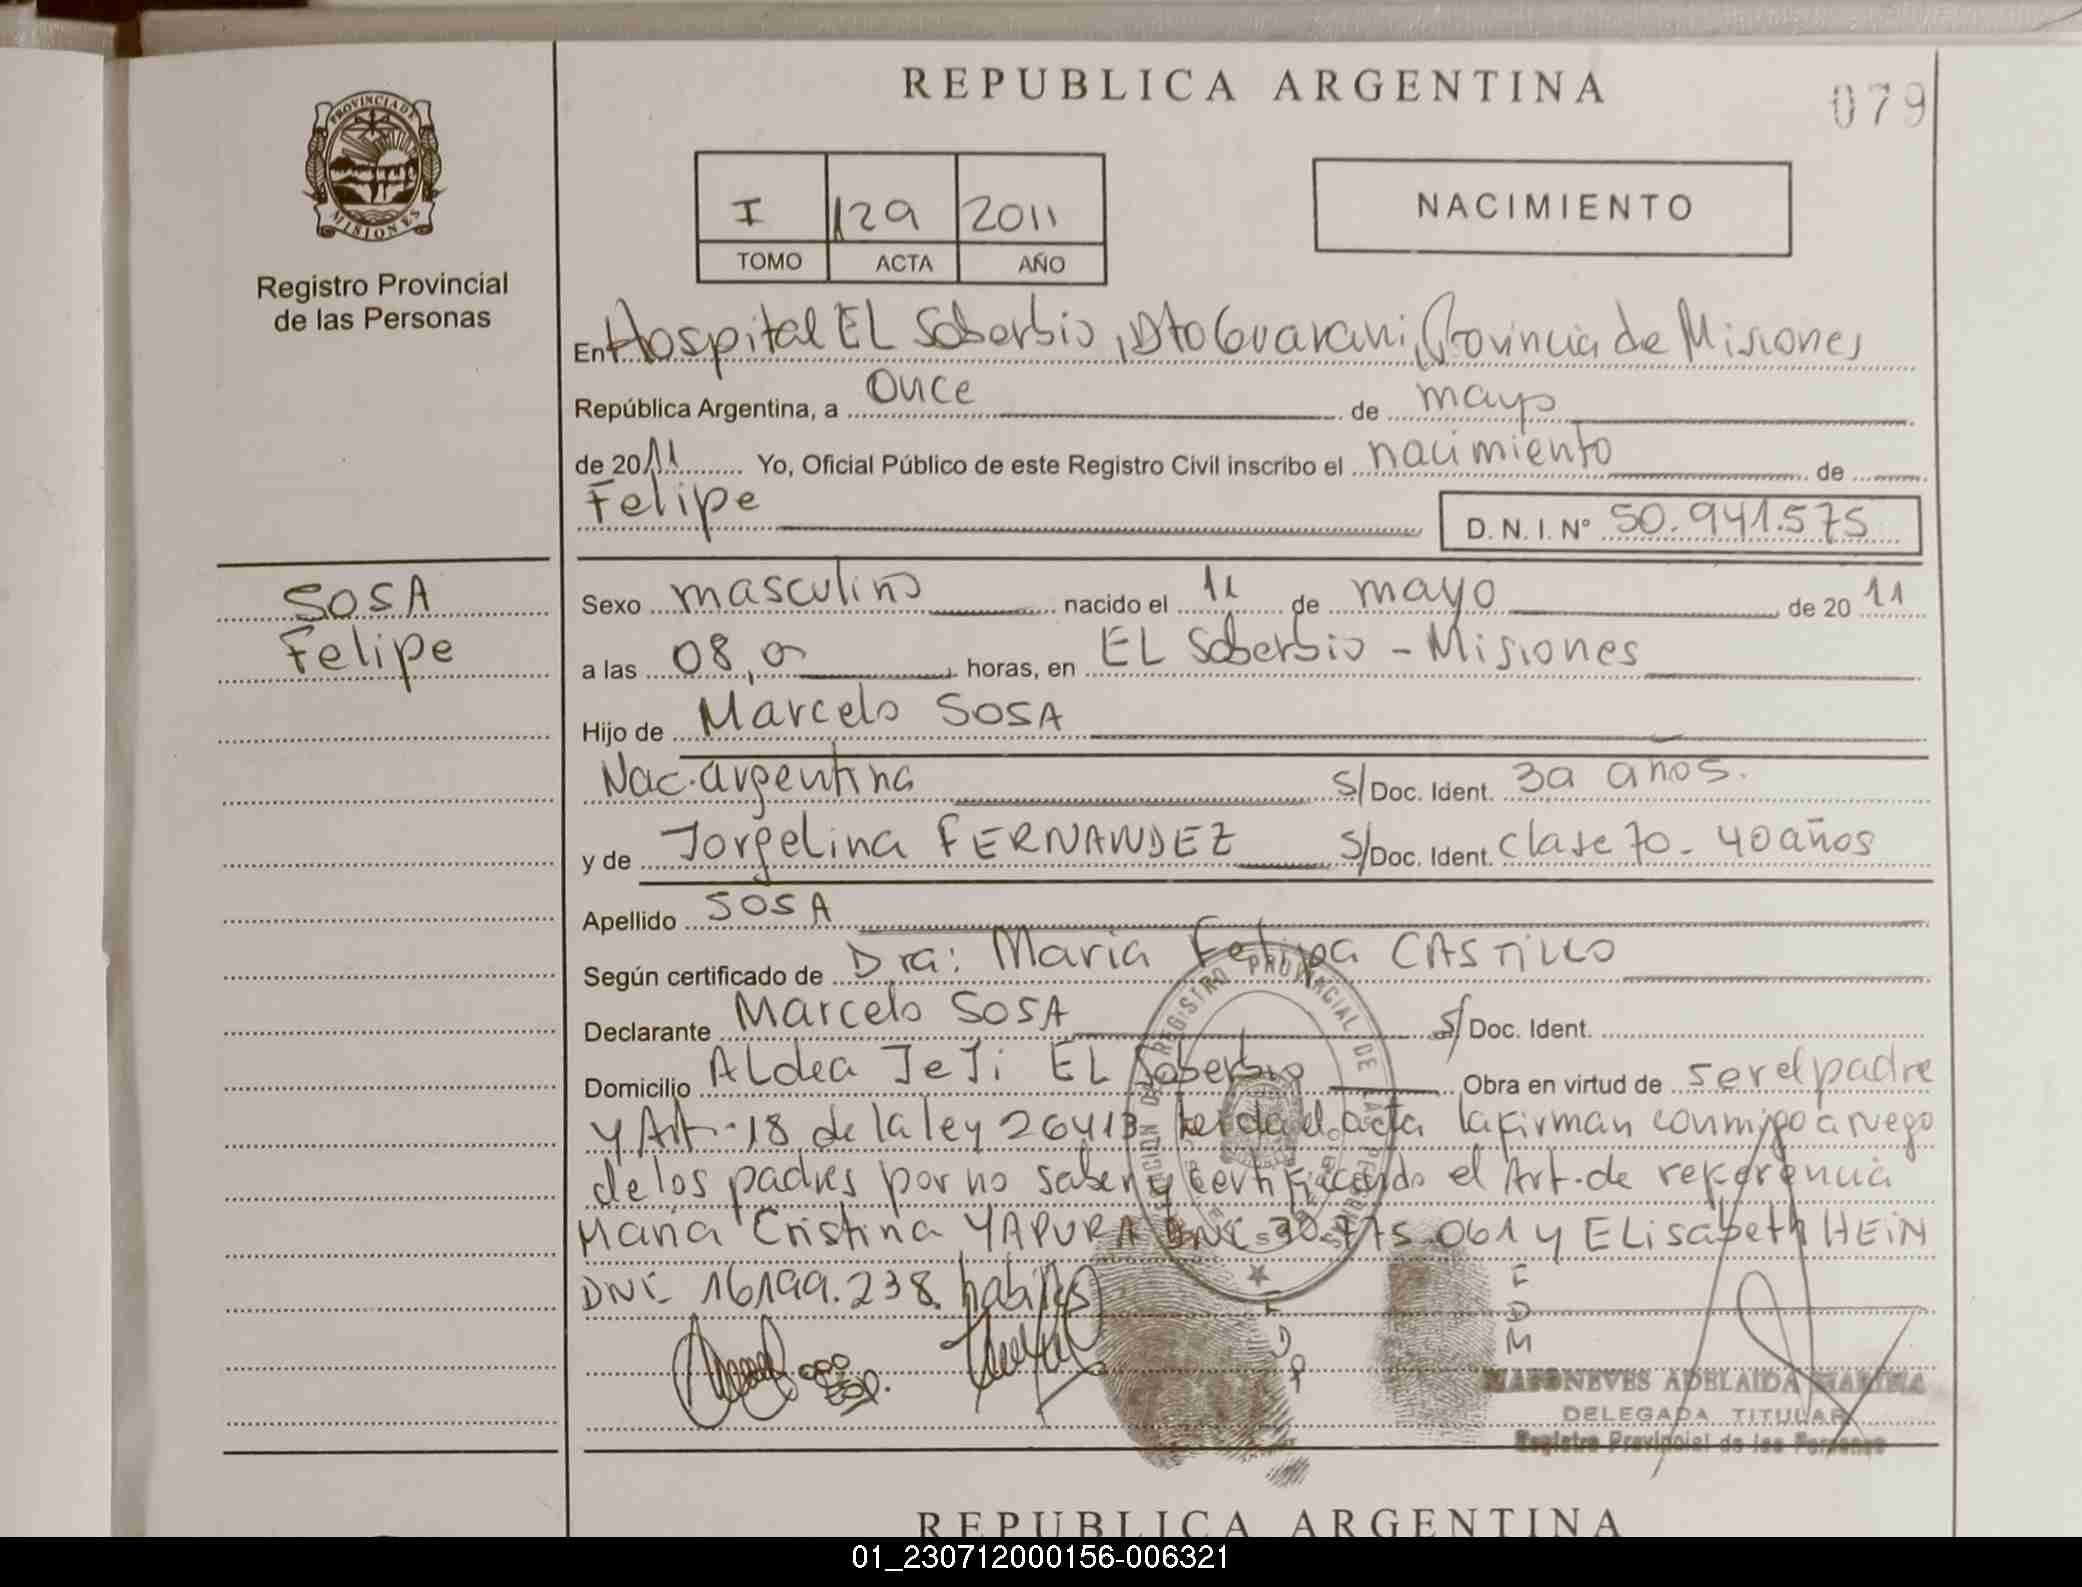 REPUBLICA ARGENTINA
079
PROVINCIA DE
MISIONES
Registro Provincial
de las Personas
I 129 2011
TOMO ACTA AÑO
NACIMIENTO
En Hospital EL Soberbio, Dto Guarani, Provincia de Misiones
República Argentina, a Once de mayo
de 2011 Yo, Oficial Público de este Registro Civil inscribo el nacimiento de
Felipe
D. N. I. Nº 50.941.575
SOSA
Felipe
Sexo masculino nacido el 11 de mayo de 2011
a las 08,00 horas, en EL Soberbio - Misiones
Hijo de Marcelo SOSA
Nac. argentina S/Doc. Ident. 39 años.
y de Jorgelina FERNANDEZ S/Doc. Ident. clase 70 - 40 años
Apellido SOSA
Según certificado de Dra: Maria Felipa CASTILLO
Declarante Marcelo SOSA S/Doc. Ident.
Domicilio Aldea JeJi EL Soberbio Obra en virtud de ser el padre
y Art. 18 de la ley 26413 leida el acta la firman conmigo a ruego
de los padres por no saber y certificando el Art. de referencia
Maria Cristina YAPURA DNI 30.775.061 y ELisabeth HEIN
DNI 16199.238 habiles
I D P
I D M
ADELAIDA MARINA
DELEGADA TITULAR
Registro Provincial de las Personas
REPUBLICA ARGENTINA
01_230712000156-006321